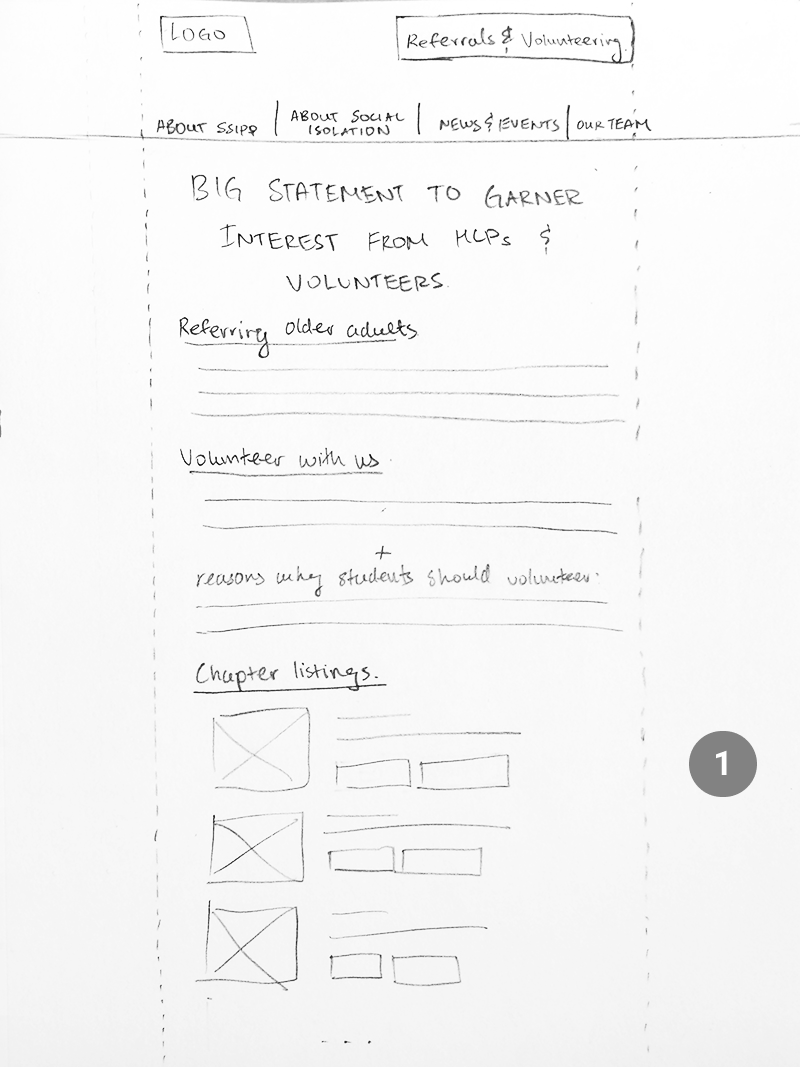 LOGO
Referrals & Volunteering
ABOUT SSIPP
ABOUT SOCIAL
ISOLATION
NEWS & EVENTS
OUR TEAM
BIG STATEMENT TO GARNER
INTEREST FROM HCPs &
VOLUNTEERS.
Referring older adults
Volunteer with us.
+
reasons why students should volunteer.
Chapter listings.
1
...